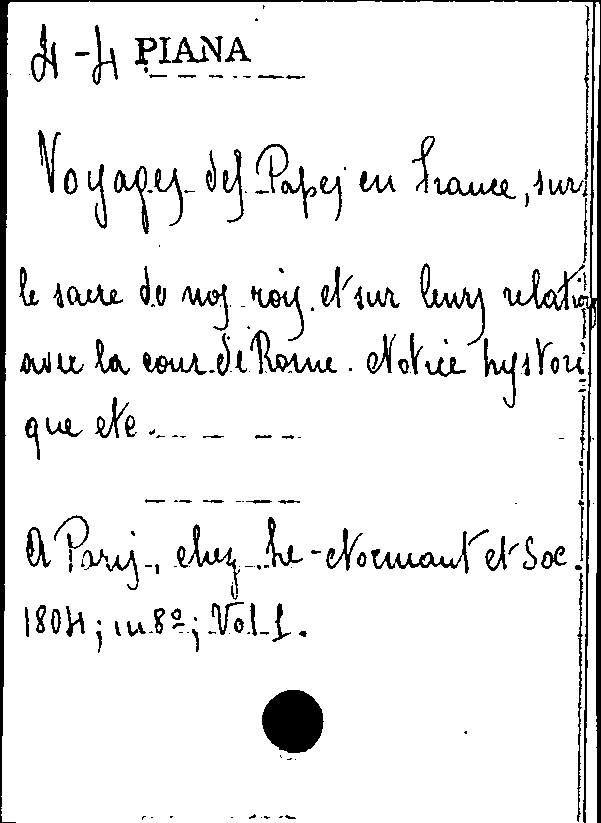 4-4 PIANA
Voyages des Papes en France, sur
le sacre de nos rois et sur leurs relations
avec la cour de Rome. Notice hystori
que etc.
A Paris, chez Le-Normant et Soc.
1804; in 8º; Vol 1.